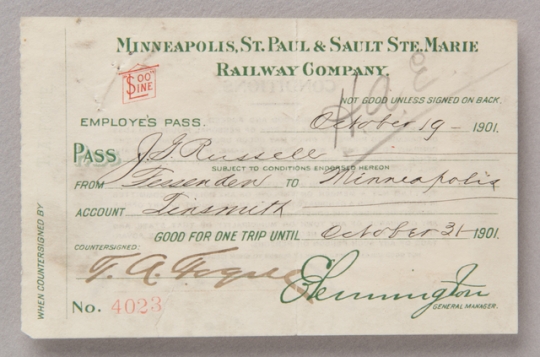 MINNEAPOLIS, ST. PAUL & SAULT STE. MARIE
RAILWAY COMPANY.
$OO LINE
NOT GOOD UNLESS SIGNED ON BACK.
EMPLOYE'S PASS. October 19 - 1901.
PASS J. G. Russell
SUBJECT TO CONDITIONS ENDORSED HEREON
FROM Fessenden TO Minneapolis
ACCOUNT Tinsmith
GOOD FOR ONE TRIP UNTIL October 31 - 1901.
WHEN COUNTERSIGNED BY
COUNTERSIGNED:
T. A.
GENERAL MANAGER.
No. 4023